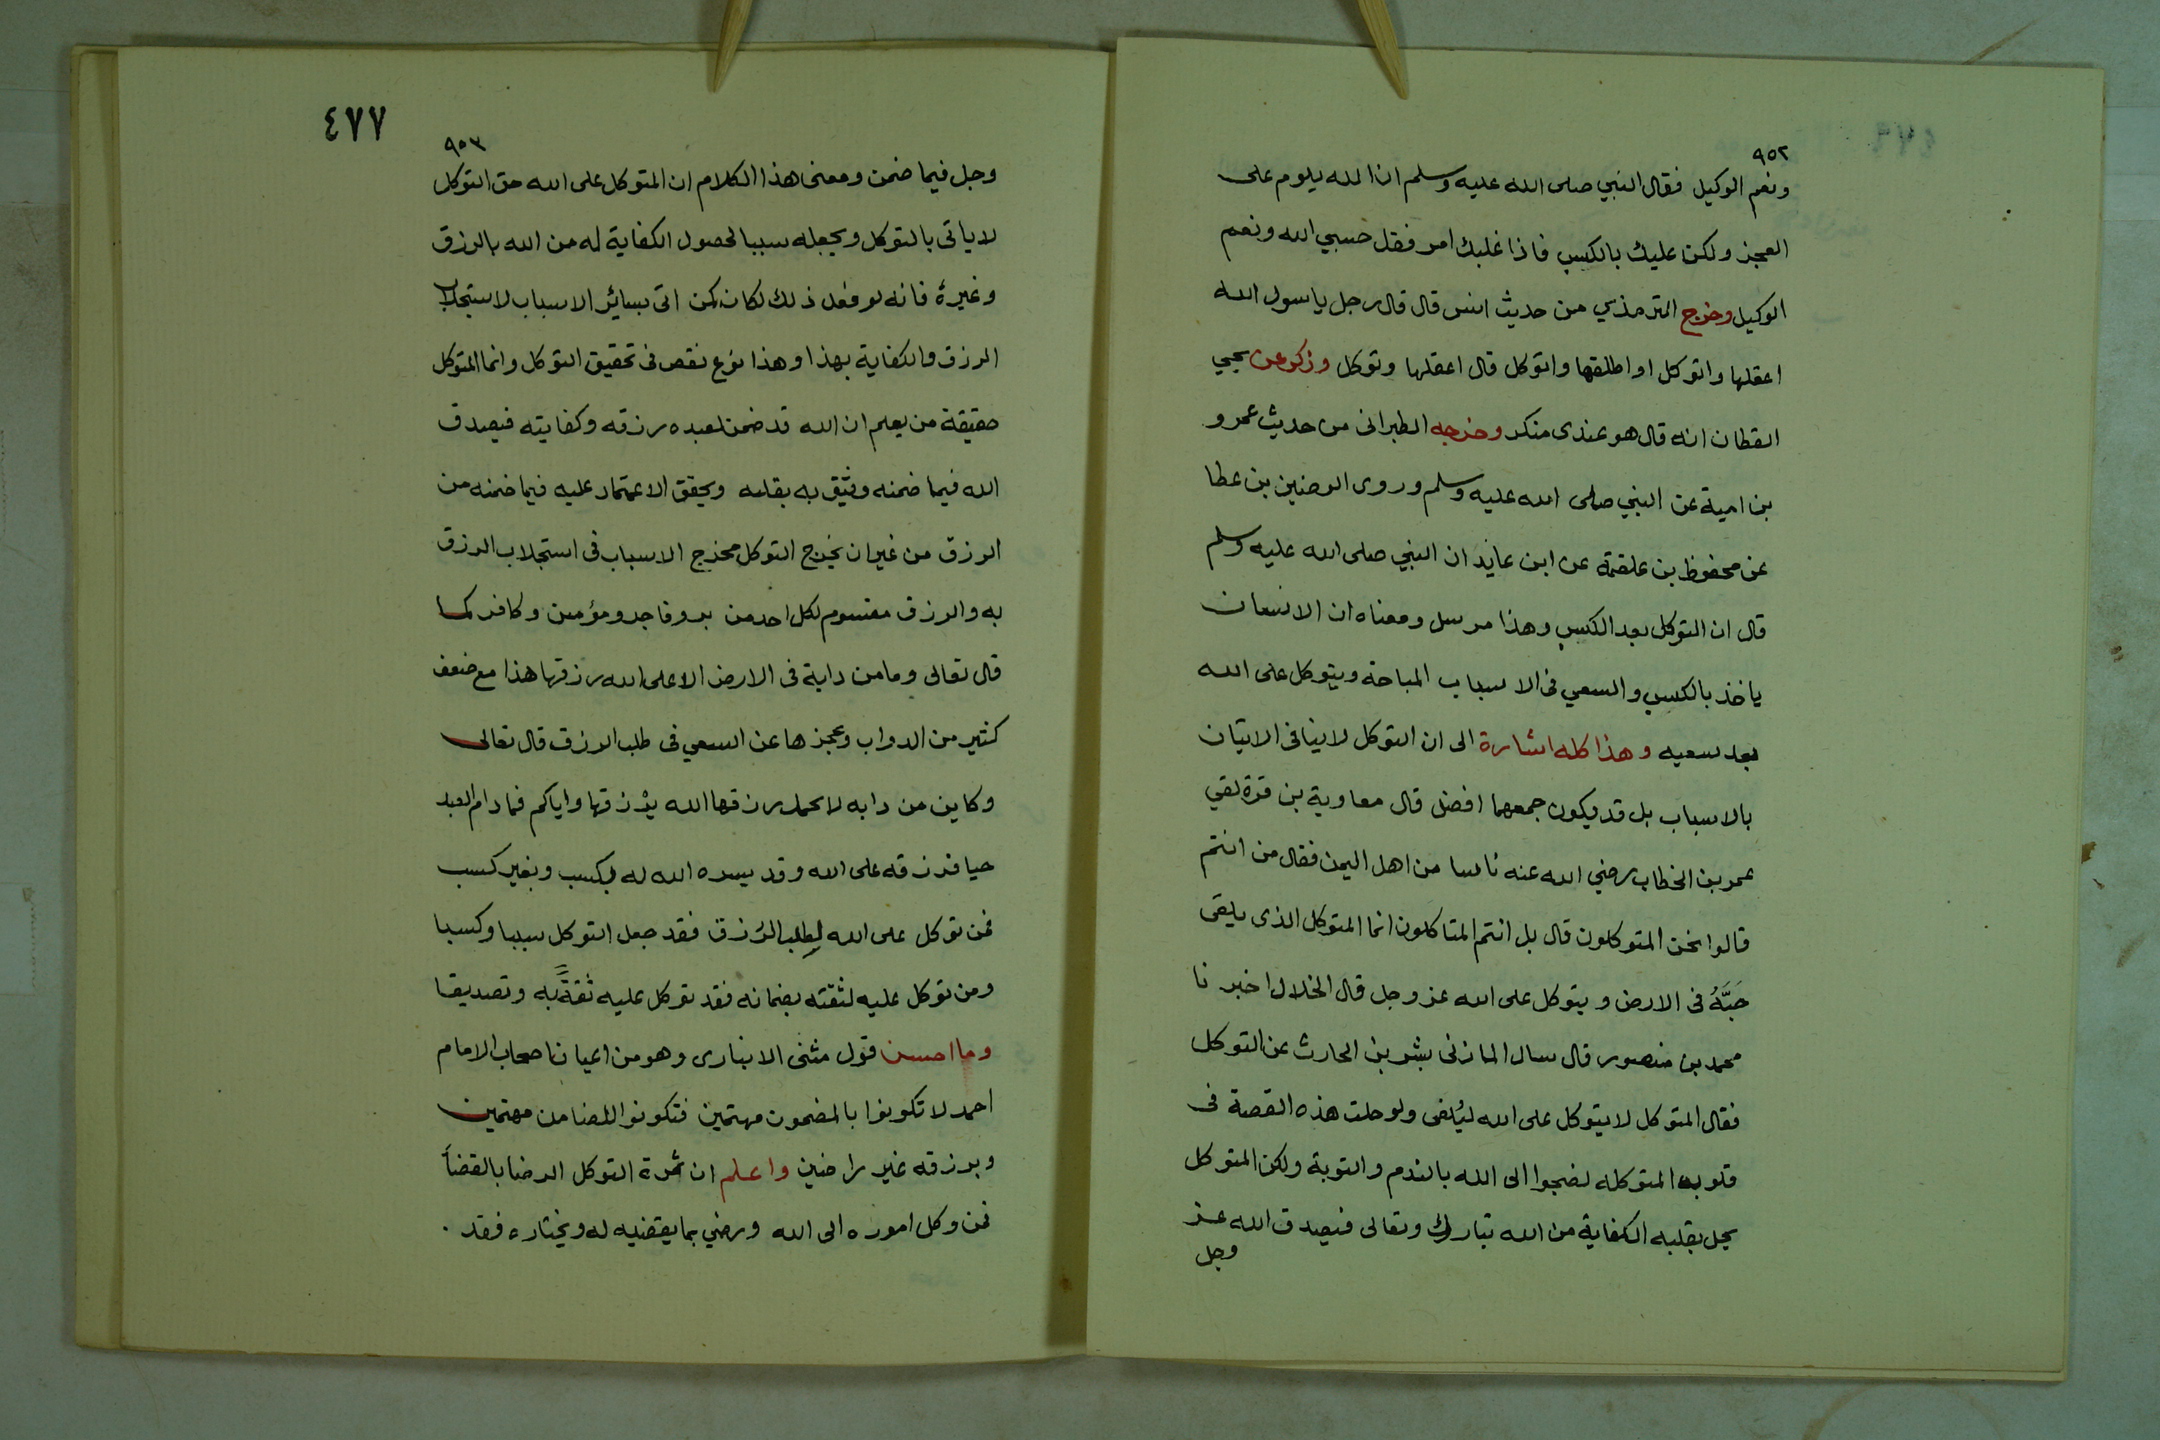 ٩٥٢
ونعم الوكيل فقال النبي صلى الله عليه وسلم ان الله يلوم على
العجز ولكن عليك بالكسب فاذا غلبك امر فقل حسبي الله ونعم
الوكيل وخرج الترمذي من حديث انس قال قال رجل يا رسول الله
اعقلها واتوكل او اطلقها واتوكل قال اعقلها وتوكل وذكر عن يحيي
القطان انه قال هو عندى منكر وخرجه الطبرانى من حديث عمرو
بن امية عن النبي صلى الله عليه وسلم وروى الوضين بن عطا
عن محفوظ بن علقمة عن ابن عايذ ان النبي صلى الله عليه وسلم
قال ان التوكل بعد الكسب وهذا مرسل ومعناه ان الانسان
ياخذ بالكسب والسعي فى الاسباب المباحة ويتوكل على الله
بعد سعيه وهذا كله اشارة الى ان التوكل لاينافى الاتيان
بالاسباب بل قد يكون جمعهما افضل قال معاوية بن قرة لقي
عمر بن الخطاب رضي الله عنه ناسا من اهل اليمن فقال من انتم
قالوا نحن المتوكلون قال بل انتم المتاكلون انما المتوكل الذى يلقى
حَبَّهُ فى الارض ويتوكل على الله عز وجل قال الخلال اخبرنا
محمد بن منصور قال سال المازنى بشر بن الحارث عن التوكل
فقال المتوكل لايتوكل على الله ليُكفى ولوحلت هذه القصة فى
قلوب المتوكله لضجوا الى الله بالندم والتوبة ولكن المتوكل
يحل بقلبه الكفاية من الله تبارك وتعالى فيصدق الله عز
وجل
٤٧٧
٩٥٣
وجل فيما ضمن ومعنى هذا الكلام ان المتوكل على الله حق التوكل
لاياتى بالتوكل ويجعله سببا لحصول الكفاية له من الله بالرزق
وغيره فانه لو فعل ذلك لكان كمن اتى بسائر الاسباب لاستجلاب
الرزق والكفاية بهذا وهذا نوع نقص فى تحقيق التوكل وانما المتوكل
حقيقة من يعلم ان الله قد ضمن لعبده رزقه وكفايته فيصدق
الله فيما ضمنه ويثق به بقلبه ويحقق الاعتماد عليه فيما ضمنه من
الرزق من غير ان يخرج التوكل مخرج الاسباب فى استجلاب الرزق
به والرزق مقسوم لكل احد من بر وفاجر ومؤمن وكافر كما
قال تعالى وما من دابة فى الارض الا على الله رزقها هذا مع ضعف
كثير من الدواب وعجزها عن السعي فى طلب الرزق قال تعالى
وكاين من دابه لاتحمل رزقها الله يرزقها واياكم فما دام العبد
حيا فرزقه على الله وقد ييسره الله له بكسب وبغير كسب
فمن توكل على الله لطلب الرزق فقد جعل التوكل سببا وكسبا
ومن توكل عليه لثقته بضمانه فقد توكل عليه ثقةً به وتصديقا
وما احسن قول مثنى الانبارى وهو من اعيان اصحاب الامام
احمد لا تكونوا بالمضمون مهتمين فتكونوا للضامن مهتمين
وبرزقه غير راضين واعلم ان ثمرة التوكل الرضا بالقضأ
فمن وكل اموره الى الله ورضي بما يقضيه له ويختاره فقد .